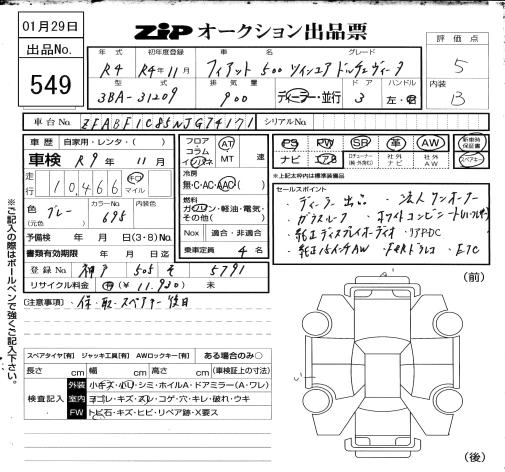 01月29日
出品No.
549
ZIP オークション出品票
評価点
5
内装
B
年式 初年度登録 車名 グレード
R4 R4年11月 フィアット500 ツインエア ドルチェヴィータ
型式 排気量 ドア ハンドル
3BA-31209 900 ディーラー・並行 3 左・右
車台No. ZFABF1C85NJG74171 シリアルNo.
車歴 自家用・レンタ・( )
車検 R9年11月
走行 10466 キロ マイル
色(元色) グレー カラーNo. 695 内装色
予備検 年 月 日(3・8)No.
書類有効期限 年 月 日迄
登録No. 神戸 505 そ 5791
リサイクル料金 有(¥11,930) 未
フロア コラム インパネ AT MT 速
冷房
無・C・AC・AAC( )
燃料
ガソリン・軽油・電気・その他( )
Nox 適合・非適合
乗車定員 4名
PS PW SR 革 AW 新車時保証書
ナビ エアB 社外ナビ 社外AW スペアキー
*上記太枠内は標準装備品
セールスポイント
・ディーラー出品 ・法人ワンオーナー
・ガラスルーフ
・純正ディスプレイオーディオ
・純正15インチAW ・F&Rドラレコ ・ETC
(注意事項)
スペアキー 後日
スペアタイヤ[有] ジャッキ工具[有] AWロックキー[有] ある場合のみ○
長さ cm 幅 cm 高さ cm (車検証上の寸法)
検査記入
外装 小キズ・小凹・シミ・ホイルA・ドアミラー(A・ワレ)
室内 ヨゴレ・キズ・スレ・コゲ・穴・キレ・破れ・ウキ
FW トビ石・キズ・ヒビ・リペア跡・X要ス
(前)
(後)
◇ご記入の際はボールペンで強くご記入下さい。